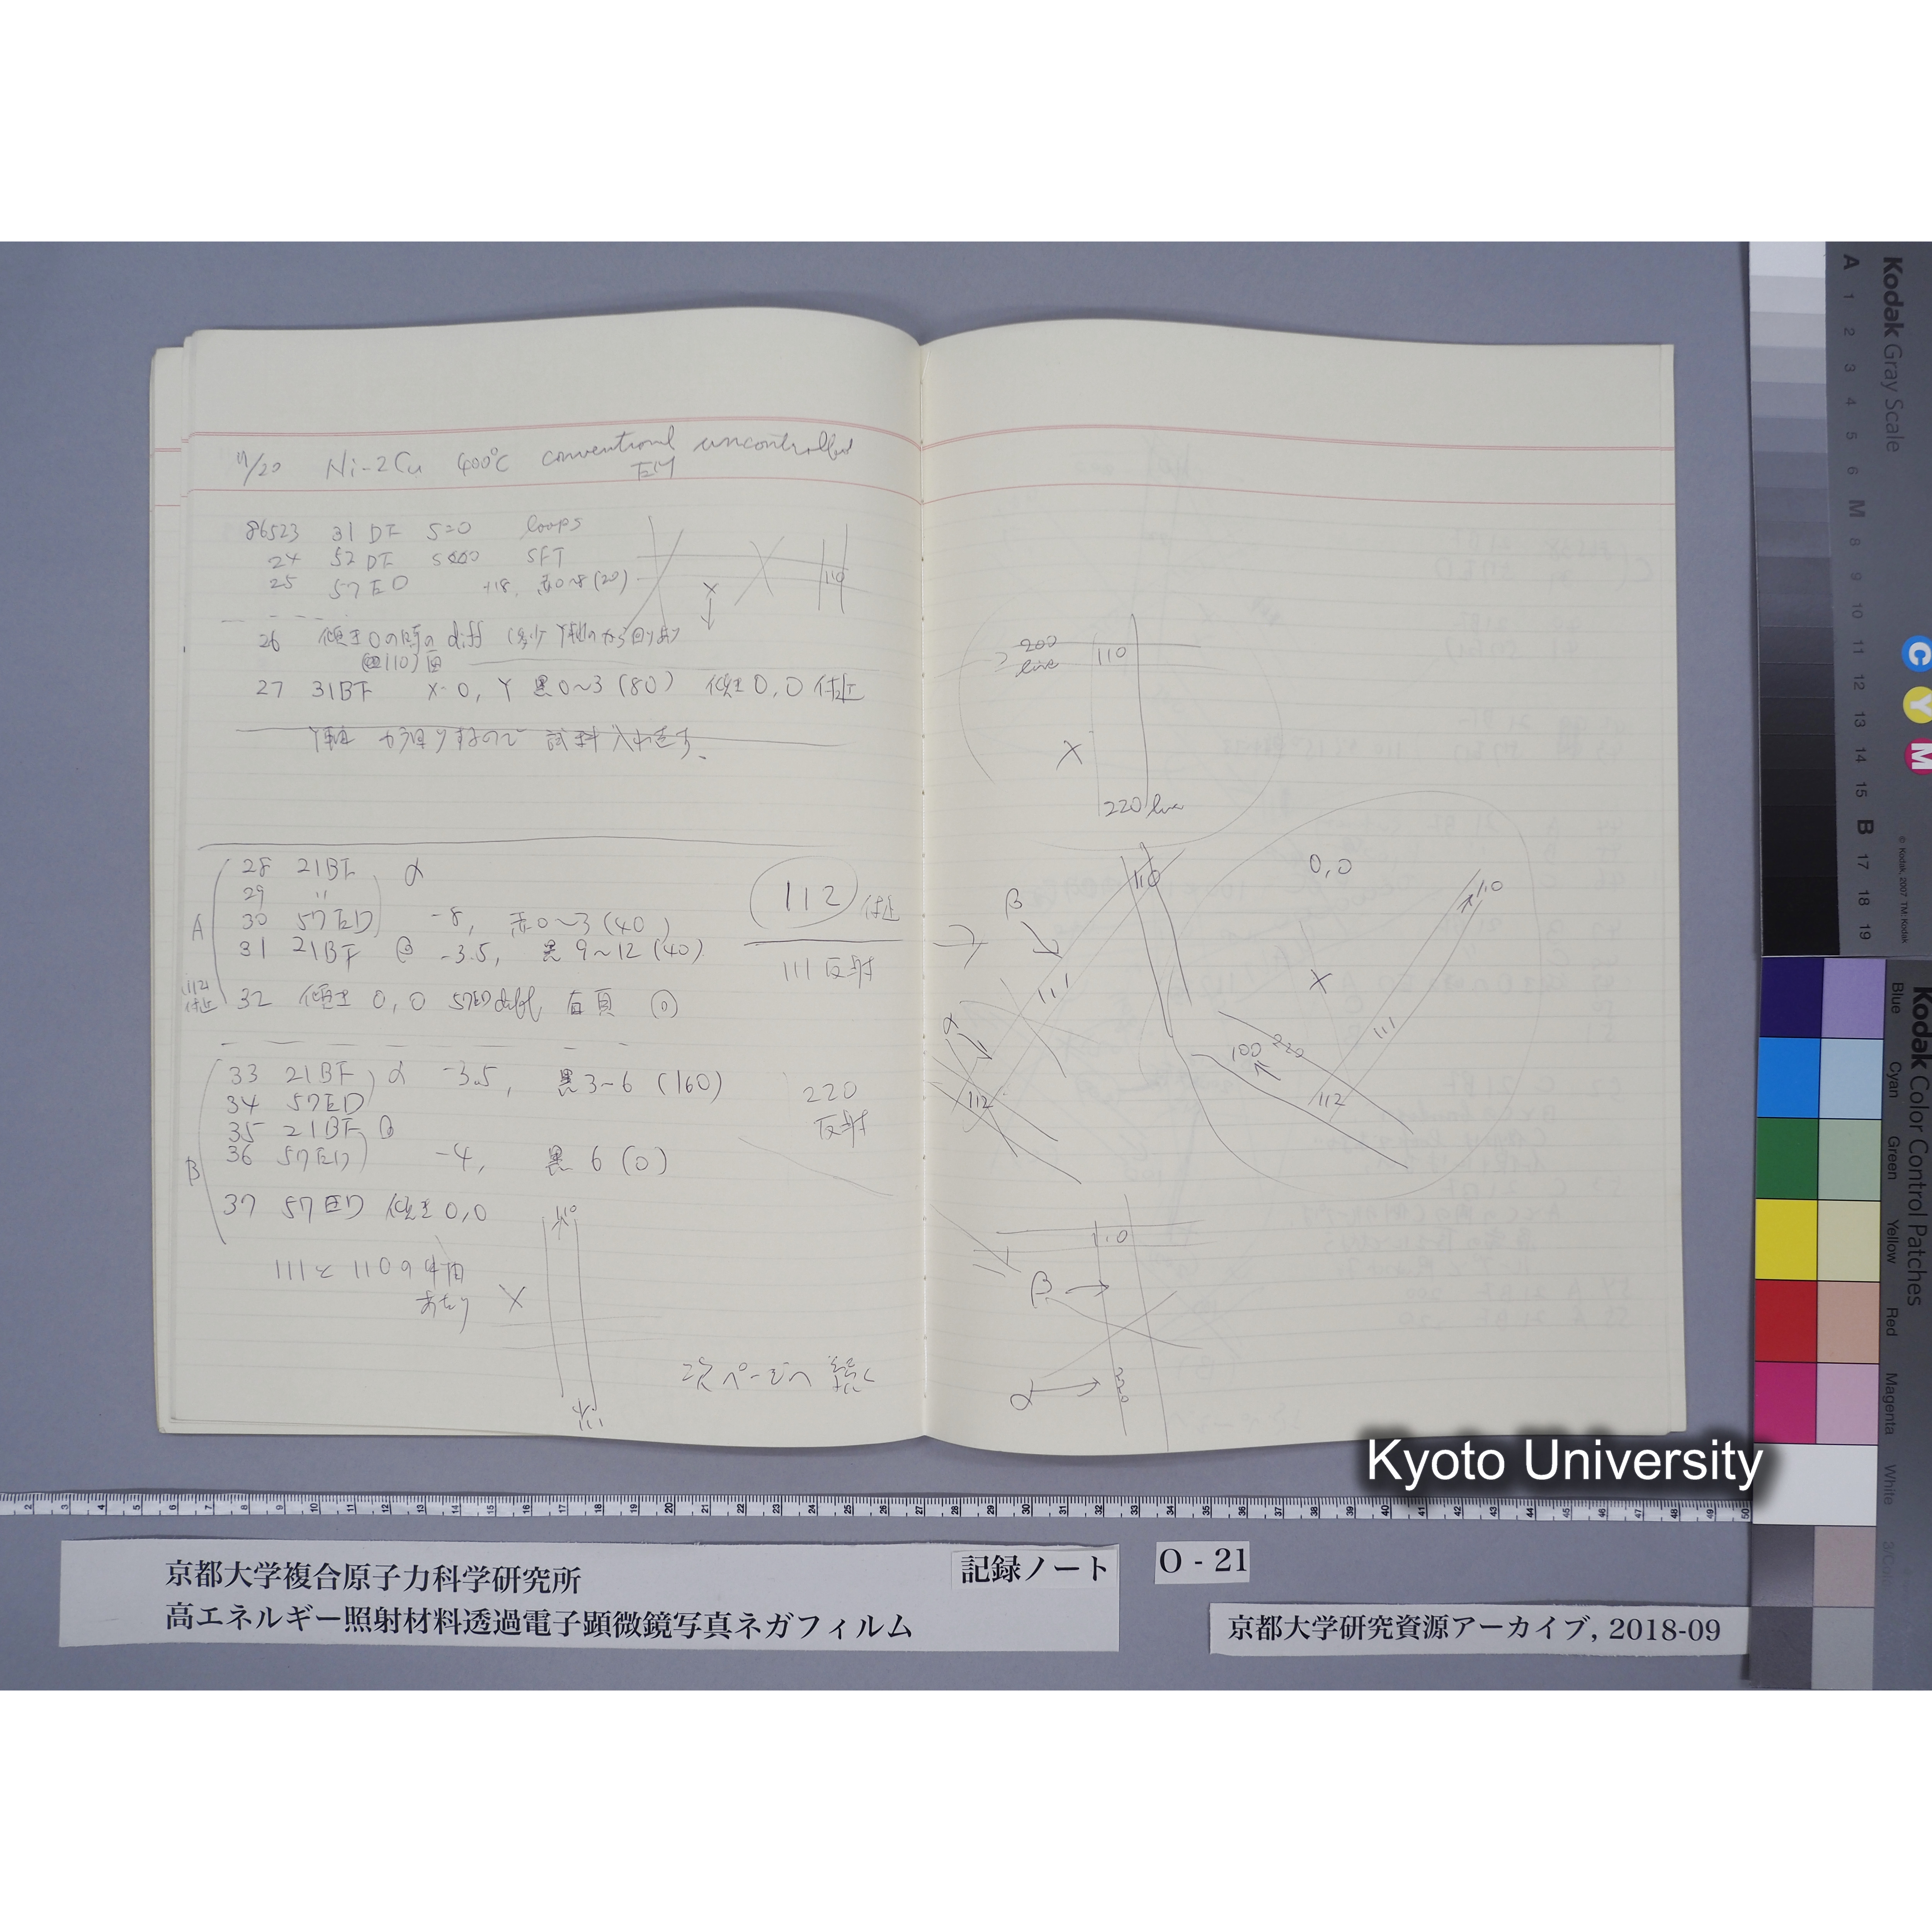 11/20 Ni-2Cu 400℃ conventional uncontrolled
EM
86523 31 DF S=0 loops
24 52 DF SFT
25 57 ED +18, 赤0~8(20)
110
X
26 傾き0の時の diff
110)面
27 31BF X=0, Y 黒0~3(80) 傾き0,0付近
Y軸 から回りするので 試料入れ直す.
A
28 21BF α
29 〃
30 57ED -8, 赤0~3(40)
31 21BF β -3.5, 黒9~12(40)
112
付近
32 傾き 0,0 57ED diff, 右頁
112 付近
111反射
B
33 21BF α -3.5, 黒3~6(160)
34 57ED
35 21BF β
36 57ED -4, 黒6(0)
220
反射
37 57ED 傾き0,0
111と110の中間
あたり
X
110
111
次ページへ続く
200
line
110
X
220 line
110
0,0
β
111
α
112
110
X
111
100
220
112
110
β
α
220
Kyoto University
京都大学複合原子力科学研究所
高エネルギー照射材料透過電子顕微鏡写真ネガフィルム
記録ノート
O - 21
京都大学研究資源アーカイブ, 2018-09
Kodak Gray Scale
A 1 2 3 4 5 6 M 8 9 10 11 12 13 14 15 B 17 18 19
C
Y
M
© Kodak, 2007 TM: Kodak
Kodak Color Control Patches
Blue
Cyan
Green
Yellow
Red
Magenta
White
2 3 4 5 6 7 8 9 10 11 12 13 14 15 16 17 18 19 20 21 22 23 24 25 26 27 28 29 30 31 32 33 34 35 36 37 38 39 40 41 42 43 44 45 46 47 48 49 50